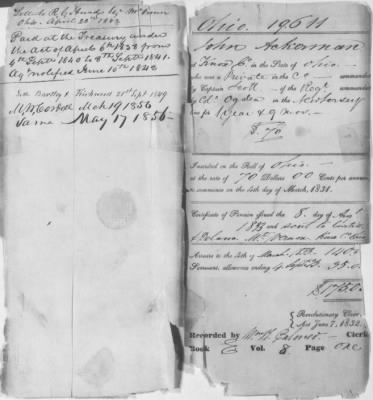 Letter to R. C. Hurd Esq. Mt Vernon
Ohio. April 20th 1843
Paid at the Treasury under
the Act of April 6th 1838 from
4th Sept 1840 to 4th Sept 1841.
Agt notified June 10th 1842
See Bartley & Kirkwood 21st Sept 1849
M, M Corbett Mch 19 1856
Same May 17 1856
Ohio. 19611
John Ackerman
of Knox Co. in the State of Ohio
who was a Private in the Co commanded
by Captain Scott of the Regt commanded
by Col. Ogden in the New Jersey
line for 1 year & 9 mos.
$ 70
Inscribed on the Roll of Ohio
at the rate of 70 Dollars 00 Cents per annum
to commence on the 4th day of March, 1831.
Certificate of Pension issued the 8. day of Augt
1833 and sent to
Delano Mt. Vernon
Arrears to the 4th of March 1833 140.00
Semi-anl. allowance ending 4 Sept 33 35.00
$175.00
Revolutionary Claim,
Act June 7, 1832.
Recorded by Clerk
Book E Vol. 8 Page